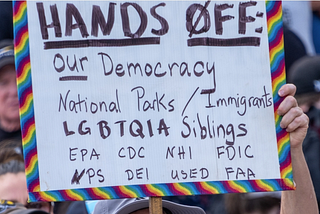 HANDS OFF:
Our Democracy
National Parks / Immigrants
LGBTQIA Siblings
EPA CDC NHI FDIC
NPS DEI USED FAA